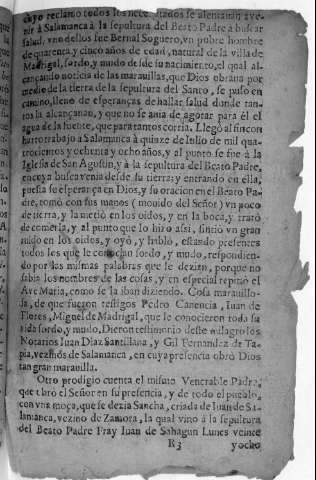 cuyo reclamo todos los nece itados se alentauan a ve-
nir à Salamanca à la sepultura del Beato Padre a buscar
salud, vno dellos fue Bernal Soguero, vn pobre hombre
de quarenta y cinco años de edad, natural de la villa de
Madrigal, sordo, y mudo desde su nacimiento, el qual al-
cançando noticia de las marauillas, que Dios obraua por
medio de la tierra de la sepultura del Santo, se puso en
camino, lleno de esperanças de hallar salud donde tan-
tos la alcançauan, y que no se auia de agotar para èl el
agua de la fuente, que para tantos corria. Llegò al fin con
harto trabajo a Salamanca à quinze de Iulio de mil qua-
trocientos y ochenta y ocho años, y al punto se fue à la
Iglesia de San Agustin, y à la sepultura del Beato Padre,
en cuya busca venia desde su tierra; y entrando en ella,
puesta su esperança en Dios, y su oracion en el Beato Pa-
dre, tomò con sus manos (mouido del Señor) vn poco
de tierra, y la metiò en los oidos, y en la boca, y tratò
de comerla, y al punto que lo hizo assi, sintiò vn gran
ruido en los oidos, y oyò, y hablò, estando presentes
todos los que le conocian sordo, y mudo, respondien-
do por las mismas palabras que le dezian, porque no
sabia los nombres de las cosas, y en especial repitiò el
Aue Maria, como se la iban diziendo. Cosa marauillo-
sa, de que fueron testigos Pedro Canencia, Iuan de
Flores, Miguel de Madrigal, que le conocieron toda su
vida sordo, y mudo. Dieron testimonio deste milagro los
Notarios Iuan Diaz Santillana, y Gil Fernandez de Ta-
pia, vezinos de Salamanca, en cuya presencia obrò Dios
tan gran marauilla.
Otro prodigio cuenta el mismo Venerable Padre,
que obrò el Señor en su presencia, y de todo el pueblo,
con vna moça, que se dezia Sancha, criada de Iuan de Sa-
lamanca, vezino de Zamora, la qual vino à la sepultura
del Beato Padre Fray Iuan de Sahagun Lunes veinte
K3 yocho